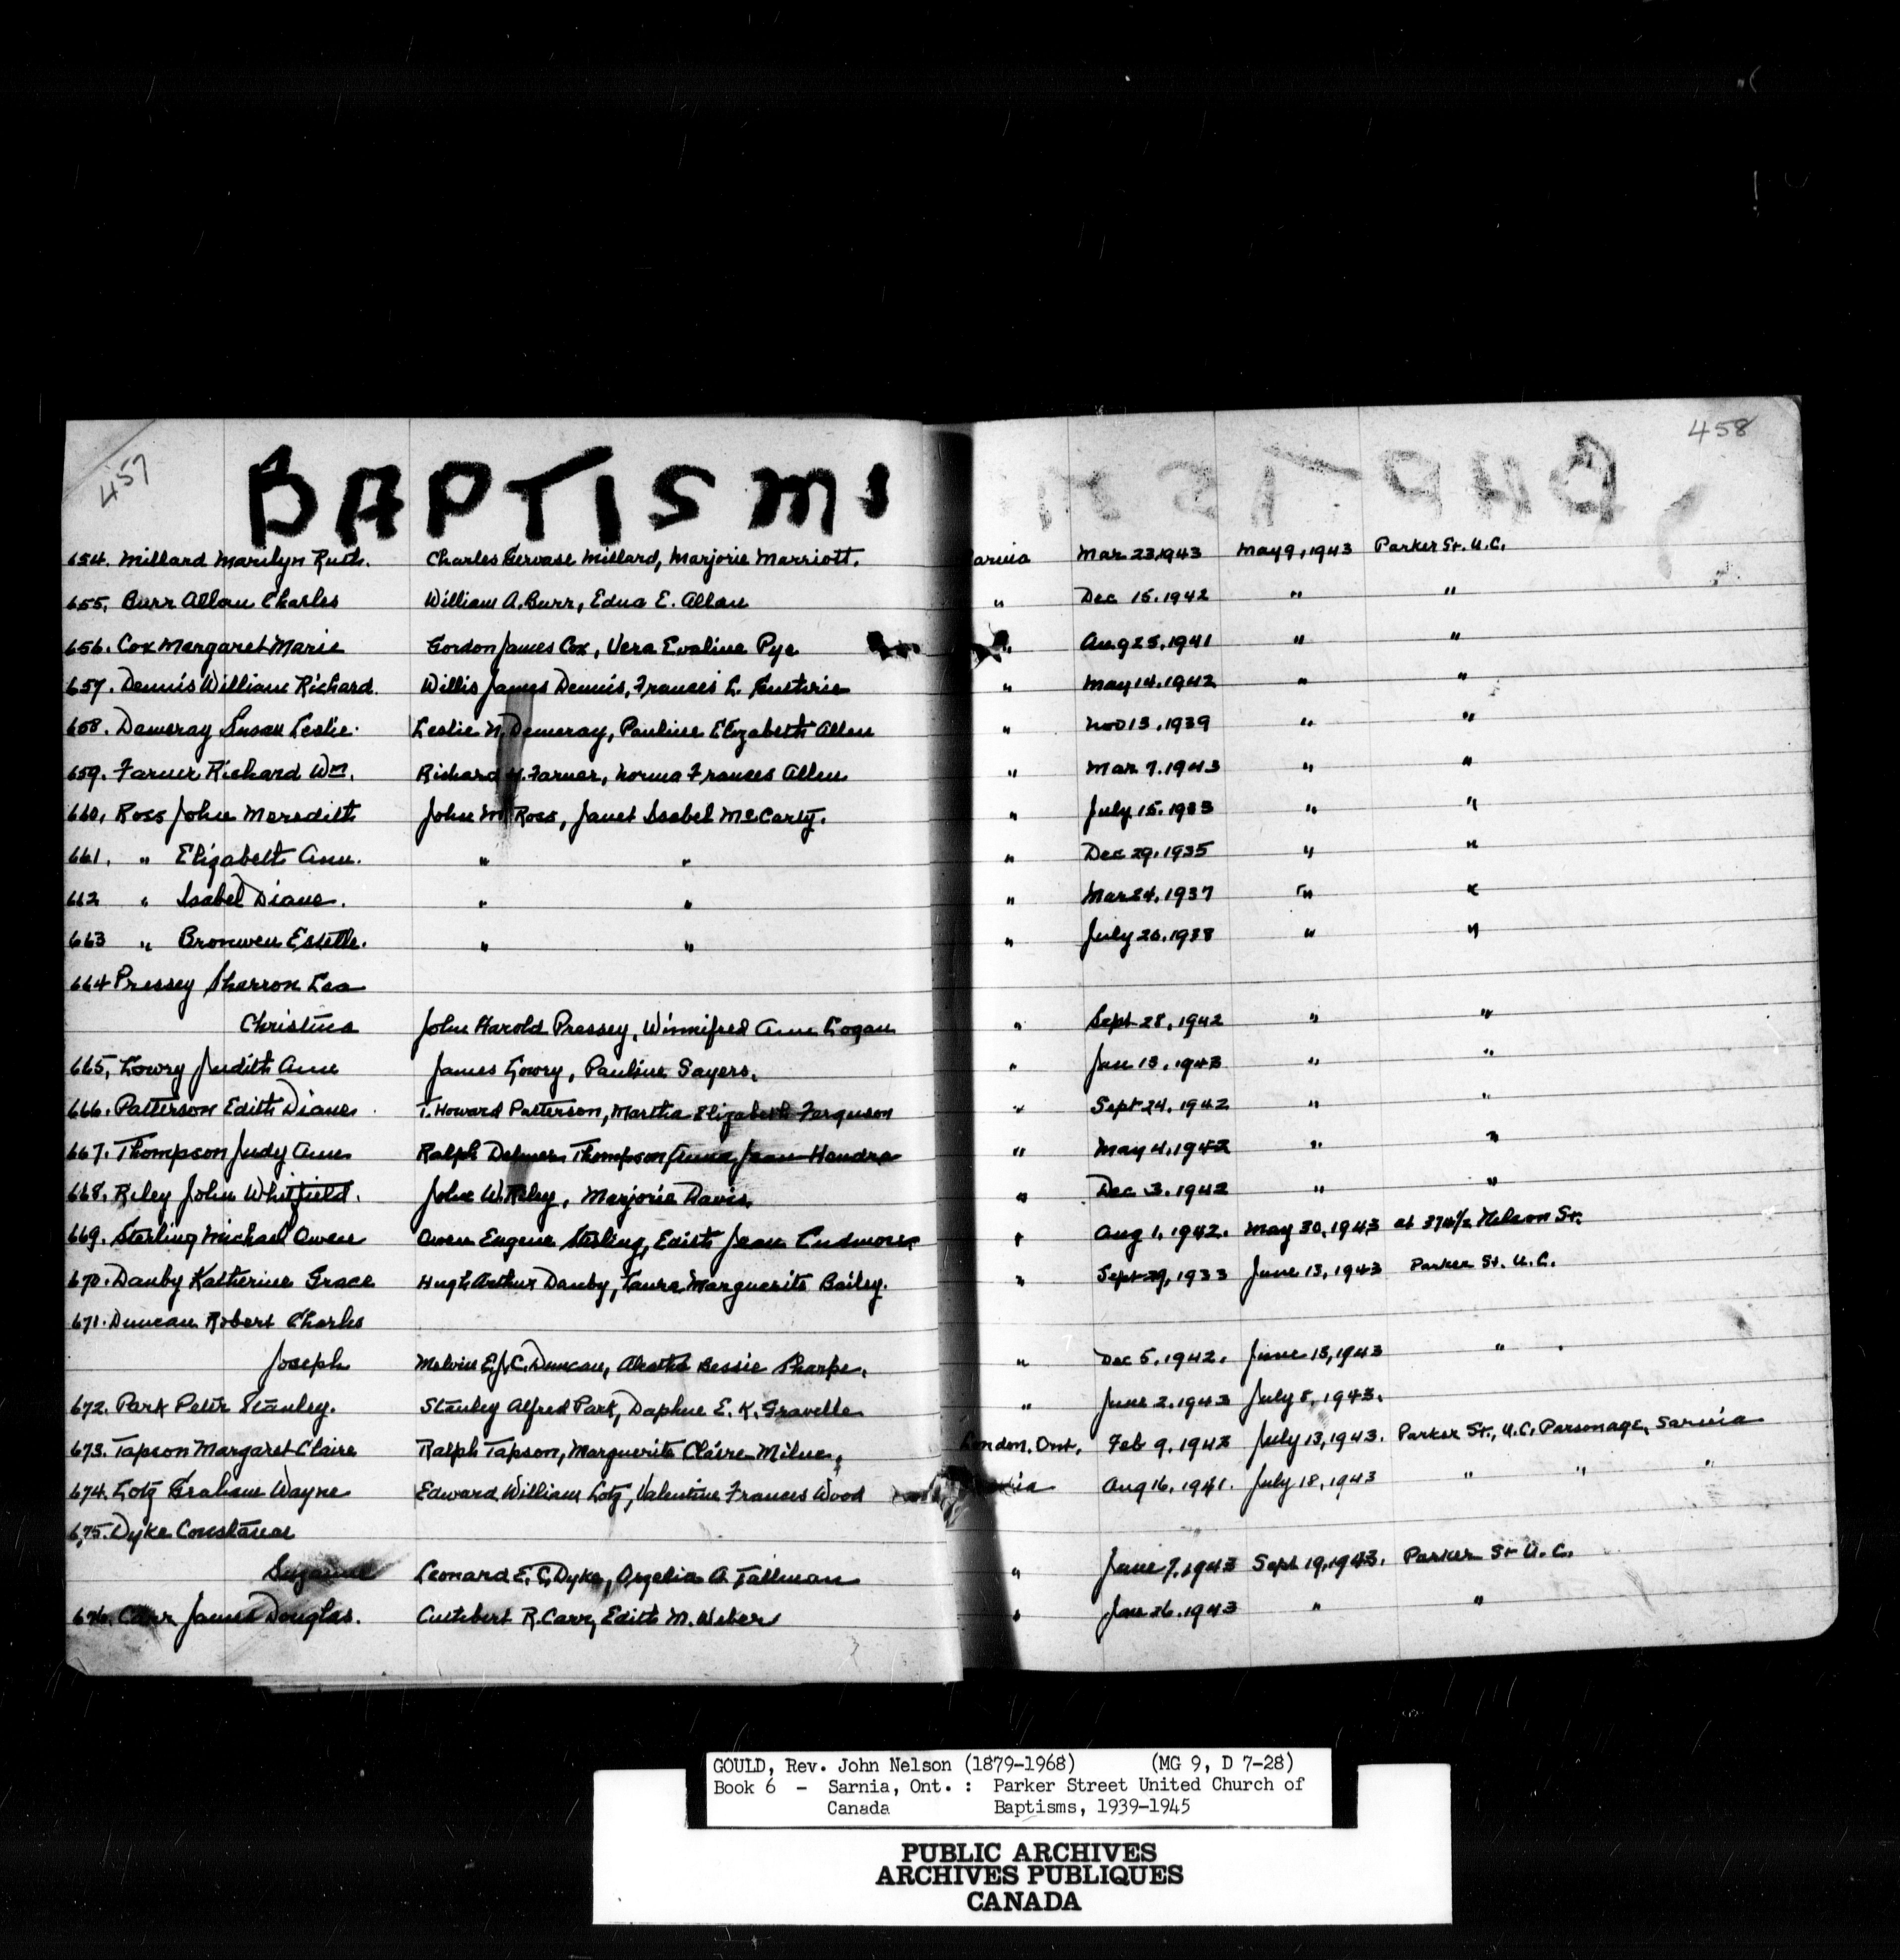 457
458
BAPTISMS
654. Millard Marilyn Ruth. Charles Gervase Millard, Marjorie Marriott. Sarnia Mar 23, 1943 May 9, 1943 Parker St. U.C.
655. Burr Allan Charles William A. Burr, Edna E. Allan " Dec 15. 1942 " "
656. Cox Margaret Marie Gordon James Cox, Vera Evaline Pye " Aug 25, 1941 " "
657. Dennis William Richard. Willis James Dennis, Frances L. Guthrie " May 14. 1942 " "
658. Demeray Susan Leslie. Leslie N. Demeray, Pauline Elizabeth Allen " Nov 13, 1939 " "
659. Farner Richard Wm. Richard H. Farner, Norma Frances Allen " Mar 7. 1943 " "
660. Ross John Meredith John M. Ross, Janet Isabel McCarty. " July 15. 1933 " "
661. " Elizabeth Ann. " " " Dec 29. 1935 " "
662 " Isabel Diane. " " " Mar 24, 1937 " "
663 " Bronwen Estelle. " " " July 20. 1938 " "
664 Pressey Sharron Lea
Christina John Harold Pressey, Winnifred Ann Logan " Sept 28, 1942 " "
665, Lowry Judith Ann James Lowry, Pauline Sayers. " Jan 13, 1943 " "
666. Patterson Edith Diane. T. Howard Patterson, Martha Elizabeth Ferguson " Sept 24. 1942 " "
667. Thompson Judy Ann Ralph Delmer Thompson, Anna Jean Hendra " May 4, 1942 " "
668. Riley John Whitfield. John W. Riley, Marjorie Davis. " Dec 3. 1942 " "
669. Sterling Michael Owen Owen Eugene Sterling, Edith Jean Cudmore " Aug 1, 1942. May 30, 1943 at 374½ Nelson St.
670. Danby Katherine Grace Hugh Arthur Danby, Laura Marguerite Bailey. " Sept 29, 1933 June 13, 1943 Parker St. U.C.
671. Duncan Robert Charles
Joseph Melvin E.J.C. Duncan, Bessie Sharpe. " Dec 5. 1942. June 13, 1943 "
672. Park Peter Stanley. Stanley Alfred Park, Daphne E. K. Gravelle " June 2. 1943 July 8, 1943.
673. Tapson Margaret Claire Ralph Tapson, Marguerite Claire Milner. London, Ont. Feb 9, 1943 July 13, 1943. Parker St., U.C. Parsonage, Sarnia
674. Lotz Graham Wayne Edward William Lotz, Valentine Frances Wood Sarnia Aug 16, 1941. July 18, 1943 " " "
675. Dyke Constance
Suzanne Leonard E. C. Dyke, Ozelia A. Tallman " June 7, 1943 Sept 19, 1943. Parker St U.C.
676. Carr James Douglas. Cuthbert R. Carr, Edith M. Weber " Jan 26. 1943 " "
GOULD, Rev. John Nelson (1879-1968) (MG 9, D 7-28)
Book 6 - Sarnia, Ont. : Parker Street United Church of
Canada Baptisms, 1939-1945
PUBLIC ARCHIVES
ARCHIVES PUBLIQUES
CANADA